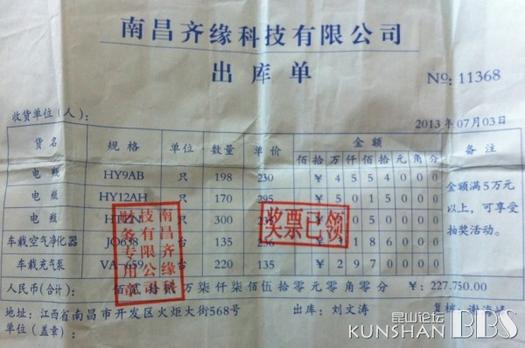 南昌齐缘科技有限公司
出库单
№: 11368
收货单位(人):
2013年07月03日
货名 规格 单位 数量 单价 金额 备注
佰 拾 万 仟 佰 拾 元 角 分
电瓶 HY9AB 只 198 230 ¥ 4 5 5 4 0 0 0
电瓶 HY12AH 只 170 295 ¥ 5 0 1 5 0 0 0
电瓶 300
车载空气净化器 JO638 台 135
车载充气泵 VA-659 台 220 135 ¥ 2 9 7 0 0 0 0
金额满5万元以上,可享受抽奖活动。
人民币(合计): 佰 贰 拾 万柒仟柒佰伍拾零元零角零分 ¥: 227.750.00
地址:江西省南昌市开发区火炬大街568号 出库:刘文涛 复核:
单位(盖章):
南昌齐缘科技有限公司财务专用章
奖票已领
昆山论坛
KUNSHAN BBS